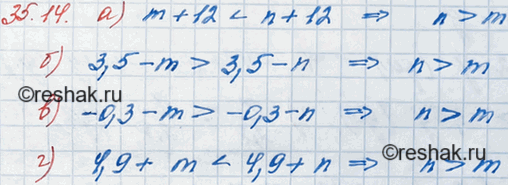 35.14. а) m + 12 < n + 12 ⇒ n > m
б) 3,5 - m > 3,5 - n ⇒ n > m
©reshak.ru
в) -0,3 - m > -0,3 - n ⇒ n > m
©reshak.ru
г) 4,9 + m < 4,9 + n ⇒ n > m